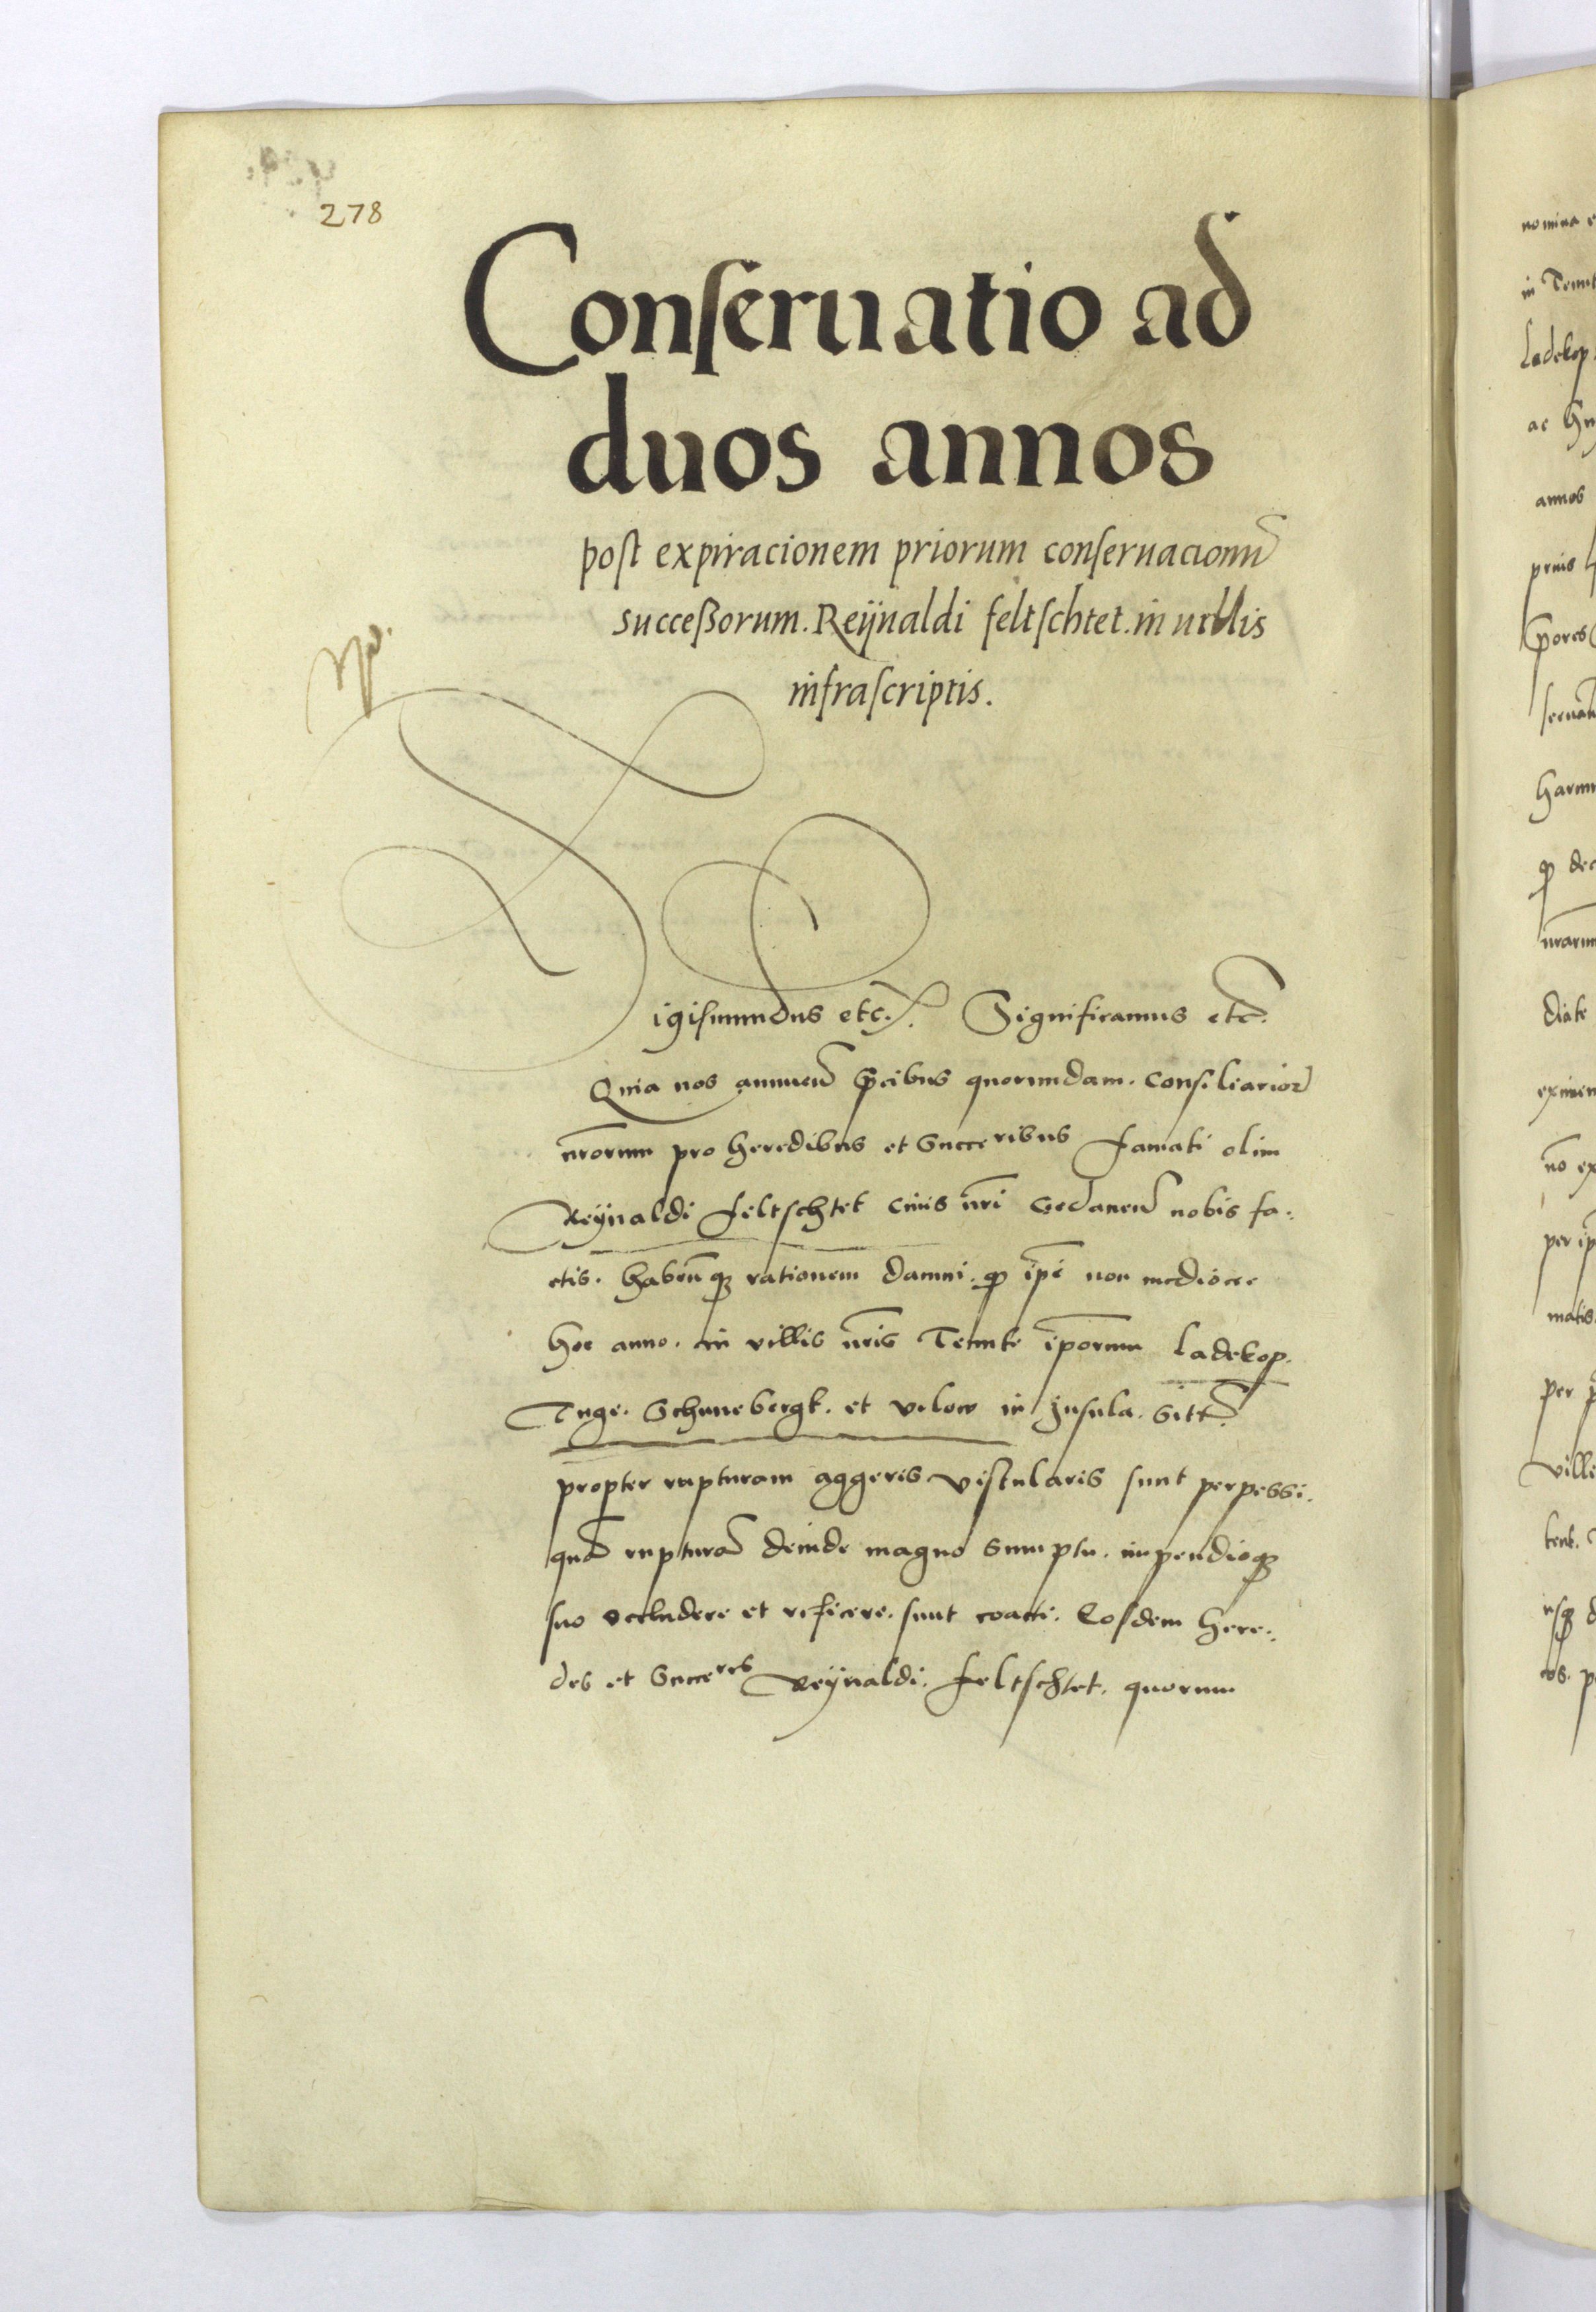 278
Conseruatio ad
duos annos
post expiracionem priorum conseruacionũ
succeßorum. Reÿnaldi feltschtet. in uillis
infrascriptis.
Sigismundus etc. Significamus etc.
Quia nos annuen̄ p̄cibus quorundam. Consiliarior̄
nr̄orum pro heredibus et Succeribus famati olim
Reÿnaldi feltschtet ciuis nr̄i Gedanen̄ nobis fa:
ctis. haben̄q3 rationem damni. q̄ ip̄i non mediocre
hoc anno. in villis nr̄is Tenute ip̄orum Ladekop.
Tuge. Schunebergk. et in Insula. Sitt̄.
propter rupturam aggeris vistularis sunt perpessi.
quā rupturā deinde magno Sumptu. impendioq3
suo occludere et reficere. sunt coacti. Eosdem here:
des et Succeres Reÿnaldi. feltschtet. quorum
nomina
Ladekop
annos